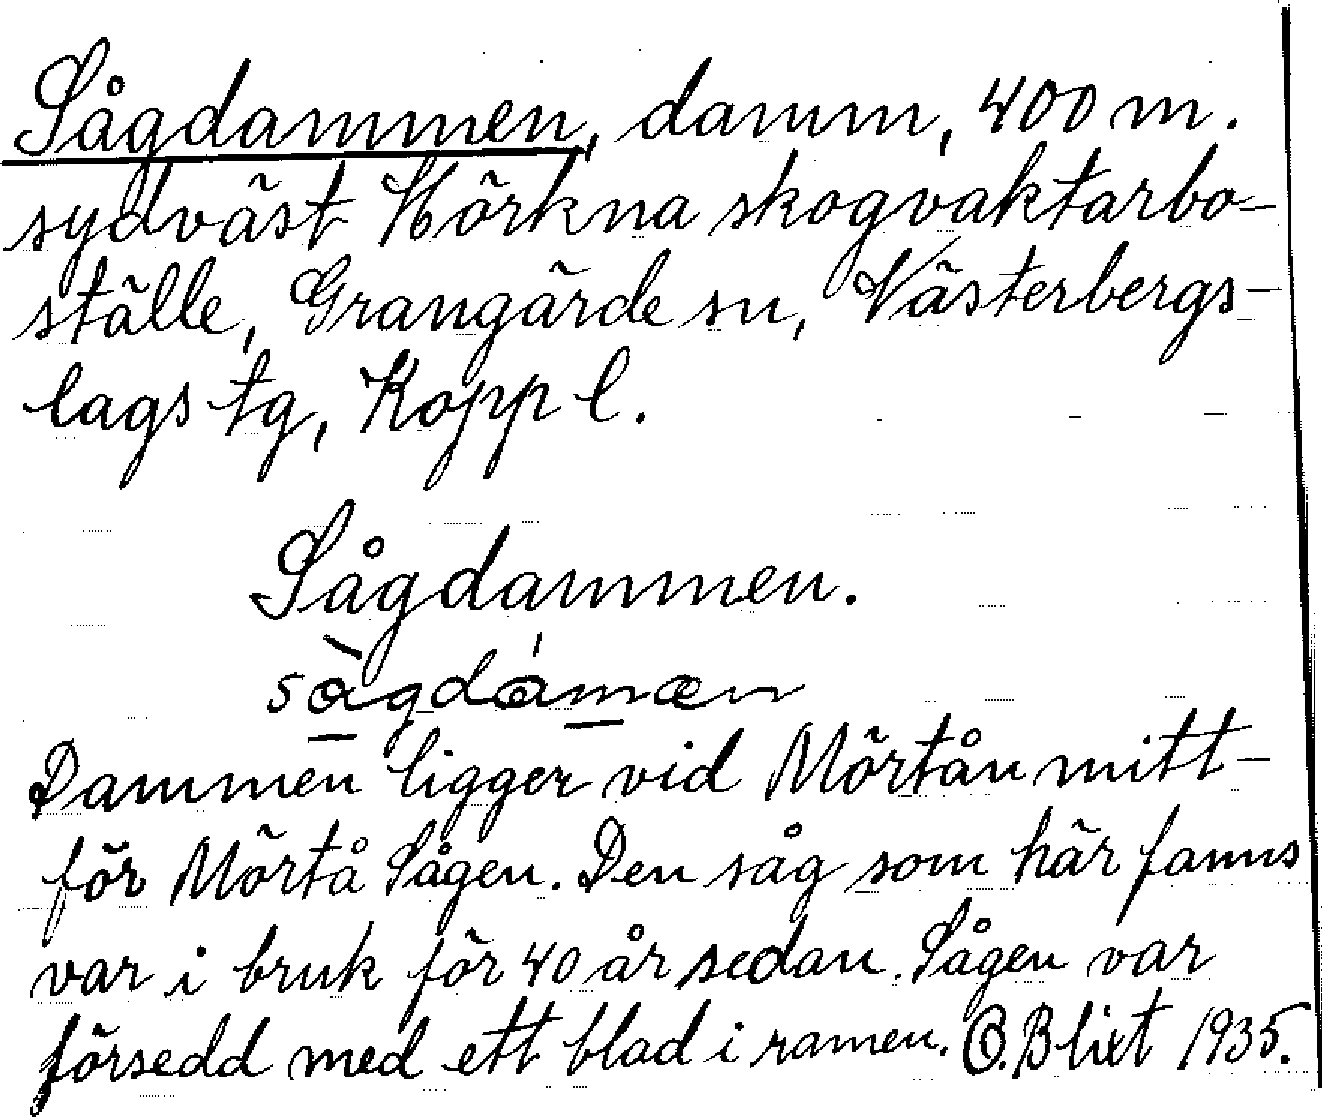 Sågdammen, damm, 400 m.
sydväst Hörkna skogvaktarbo-
ställe, Grangärde sn, Västerbergs-
lags tg, Kopp l.
Sågdammen.
sὰgdάmæn
Dammen ligger vid Mörtån mitt-
för Mörtå Sågen. Den såg som här fanns
var i bruk för 40 år sedan. Sågen var
försedd med ett blad i ramen. O. Blixt 1935.